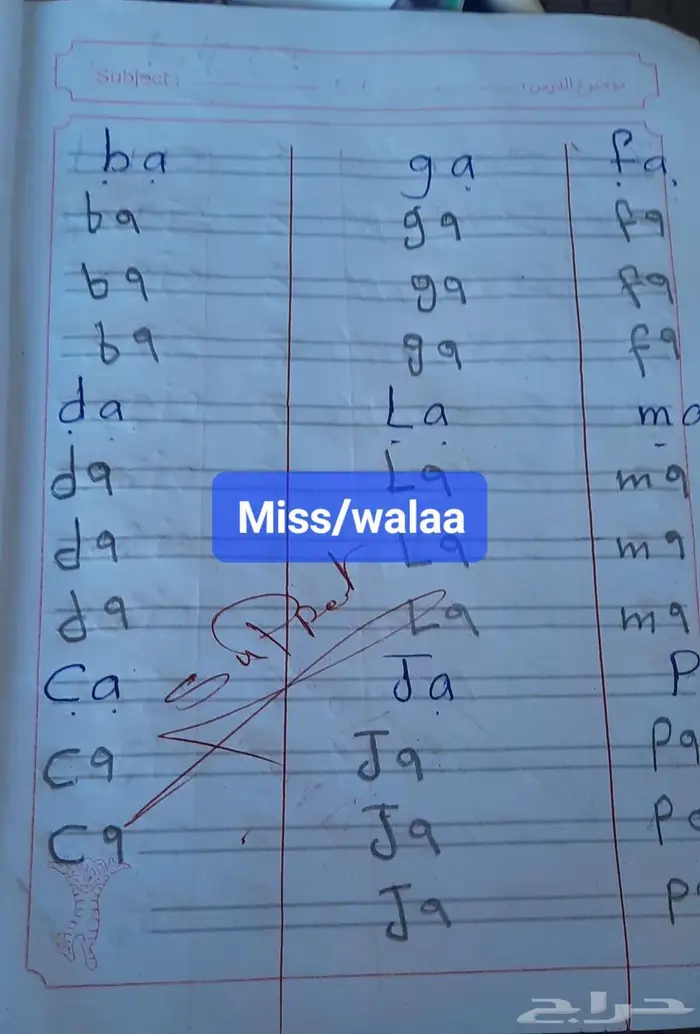 Subject : / / موضوع الدرس :
ba ga fa
ba ga fa
ba ga fa
ba ga fa
da La ma
da La ma
Miss/walaa
da La ma
da La ma
Supper
Ca Ja P
Ca Ja Pa
Ca Ja Pa
Ja Pa
حراج